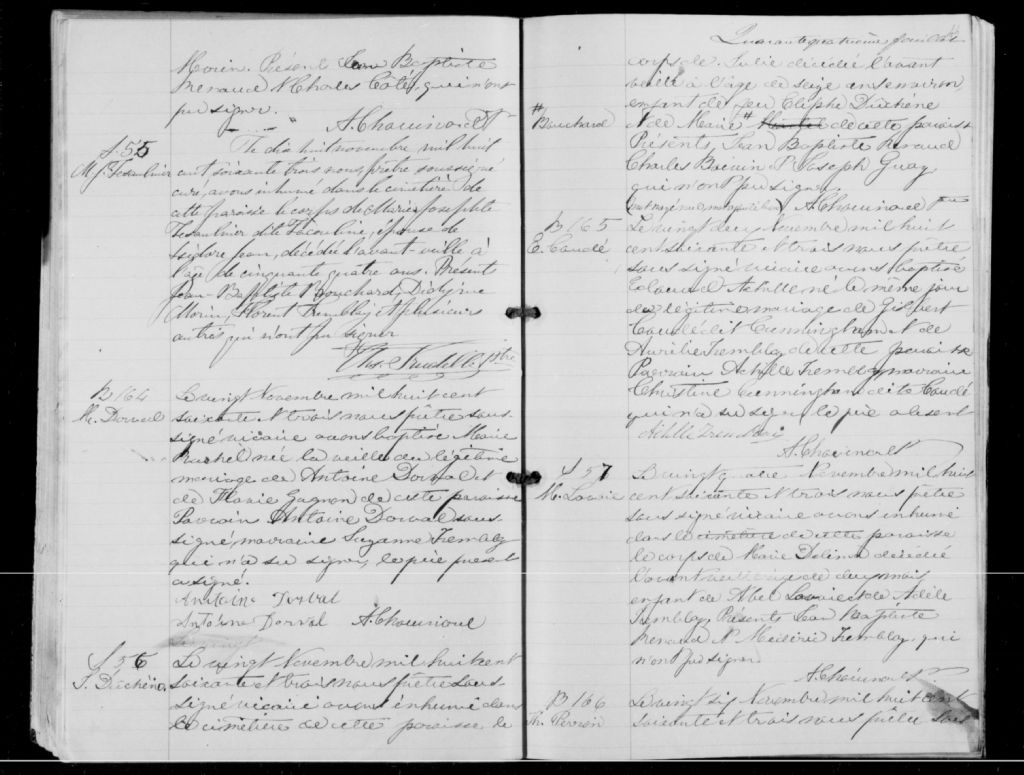 Morin. Présent Jean Baptiste
Renaud & Charles Coté, qui n'ont
pu signer.
A. Chouinard Ptre
S. 55
M. J. Lesaulnier
Le dix huit novembre mil huit
cent soixante trois nous prêtre soussigné
curé, avons inhumé dans le cimetière de
cette paroisse le corps de Marie Josephte
Lesaulnier dite épouse de
Isidore Jean, décédée l'avant-veille à
l'age de cinquante quatre ans. Présent
Jean-Baptiste Bouchard,
Morin, Florent Tremblay et plusieurs
autres qui n'ont pu signer
Chs. Trudelle ptre
B 164
M. Dorval
Le vingt Novembre mil huit cent
soixante et trois nous prêtre sous-
signé vicaire avons baptisé Marie
Rachel née la veille du légitime
mariage de Antoine Dorval et
de Flavie Gagnon de cette paroisse
Parrain Antoine Dorval sous-
signé, marraine Suzanne Tremblay
qui n'a su signer, le père présent
a signé.
Antoine Dorval
Antoine Dorval A. Chouinard
S 56
J. Duchêne
Le vingt Novembre mil huit cent
soixante et trois nous prêtre sous-
signé vicaire avons inhumé dans
le cimetière de cette paroisse le
Quarante quatrième feuillet
corps de Julie décédée l'avant
veille à l'âge de seize ans environ
enfant de feu Eliphe Duchêne
& de Marie # de cette paroisse
# Bouchard
Présents, Jean Baptiste Renaud
Charles & Joseph Guay
qui n'ont pu signer.
A. Chouinard Ptre
B 165
E. Caudé
Le vingt deux Novembre mil huit
cent soixante et trois nous prêtre
sous signé vicaire avons baptisé
Edouard Achille né le même jour
du légitime mariage de Gilbert
Caudé dit Cunningham & de
Aurélie Tremblay de cette paroisse
Parrain Achille Tremblay marraine
Christine Cunningham dite Caudé
qui n'a su signer le père absent
Achille Tremblay
A. Chouinard
S 57
M. Lavoie
Le vingt Novembre mil huit
cent soixante et trois nous prêtre
sous signé vicaire avons inhumé
dans le cimetière de cette paroisse
le corps de Marie Delina décédée
l'avant veille agée de deux mois
enfant de Abel Lavoie & de Adèle
Tremblay Présents Jean Baptiste
Renaud & Médéric Tremblay, qui
n'ont pu signer.
A. Chouinard
B 166
Perron
Le vingt six Novembre mil huit cent
soixante et trois nous prêtre sous